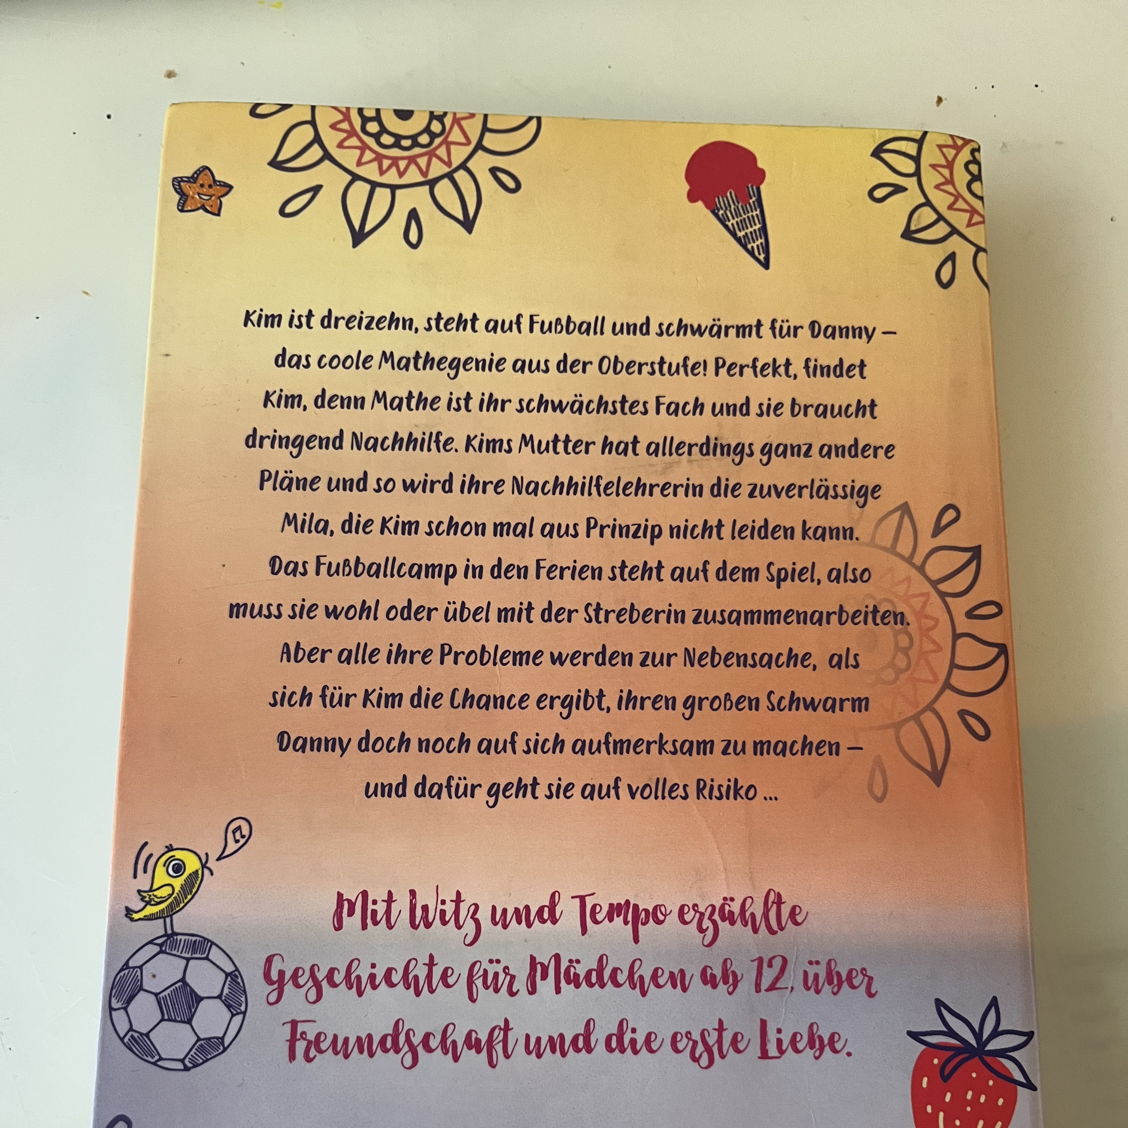 Kim ist dreizehn, steht auf Fußball und schwärmt für Danny –
das coole Mathegenie aus der Oberstufe! Perfekt, findet
Kim, denn Mathe ist ihr schwächstes Fach und sie braucht
dringend Nachhilfe. Kims Mutter hat allerdings ganz andere
Pläne und so wird ihre Nachhilfelehrerin die zuverlässige
Mila, die Kim schon mal aus Prinzip nicht leiden kann.
Das Fußballcamp in den Ferien steht auf dem Spiel, also
muss sie wohl oder übel mit der Streberin zusammenarbeiten.
Aber alle ihre Probleme werden zur Nebensache, als
sich für Kim die Chance ergibt, ihren großen Schwarm
Danny doch noch auf sich aufmerksam zu machen –
und dafür geht sie auf volles Risiko ...
Mit Witz und Tempo erzählte
Geschichte für Mädchen ab 12, über
Freundschaft und die erste Liebe.